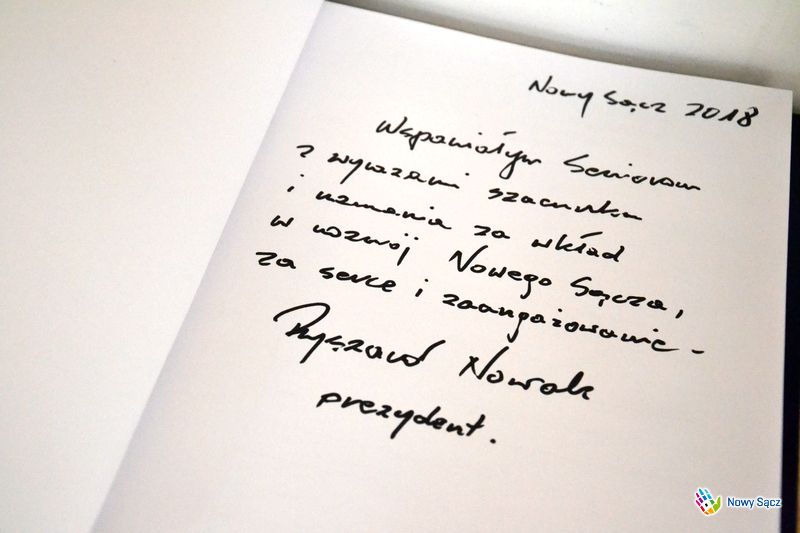 Nowy Sącz 2018
Wspaniałym Seniorom
z wyrazami szacunku
i uznania za wkład
w rozwój Nowego Sącza,
za serce i zaangażowanie -
Ryszard Nowak
prezydent.
Nowy Sącz